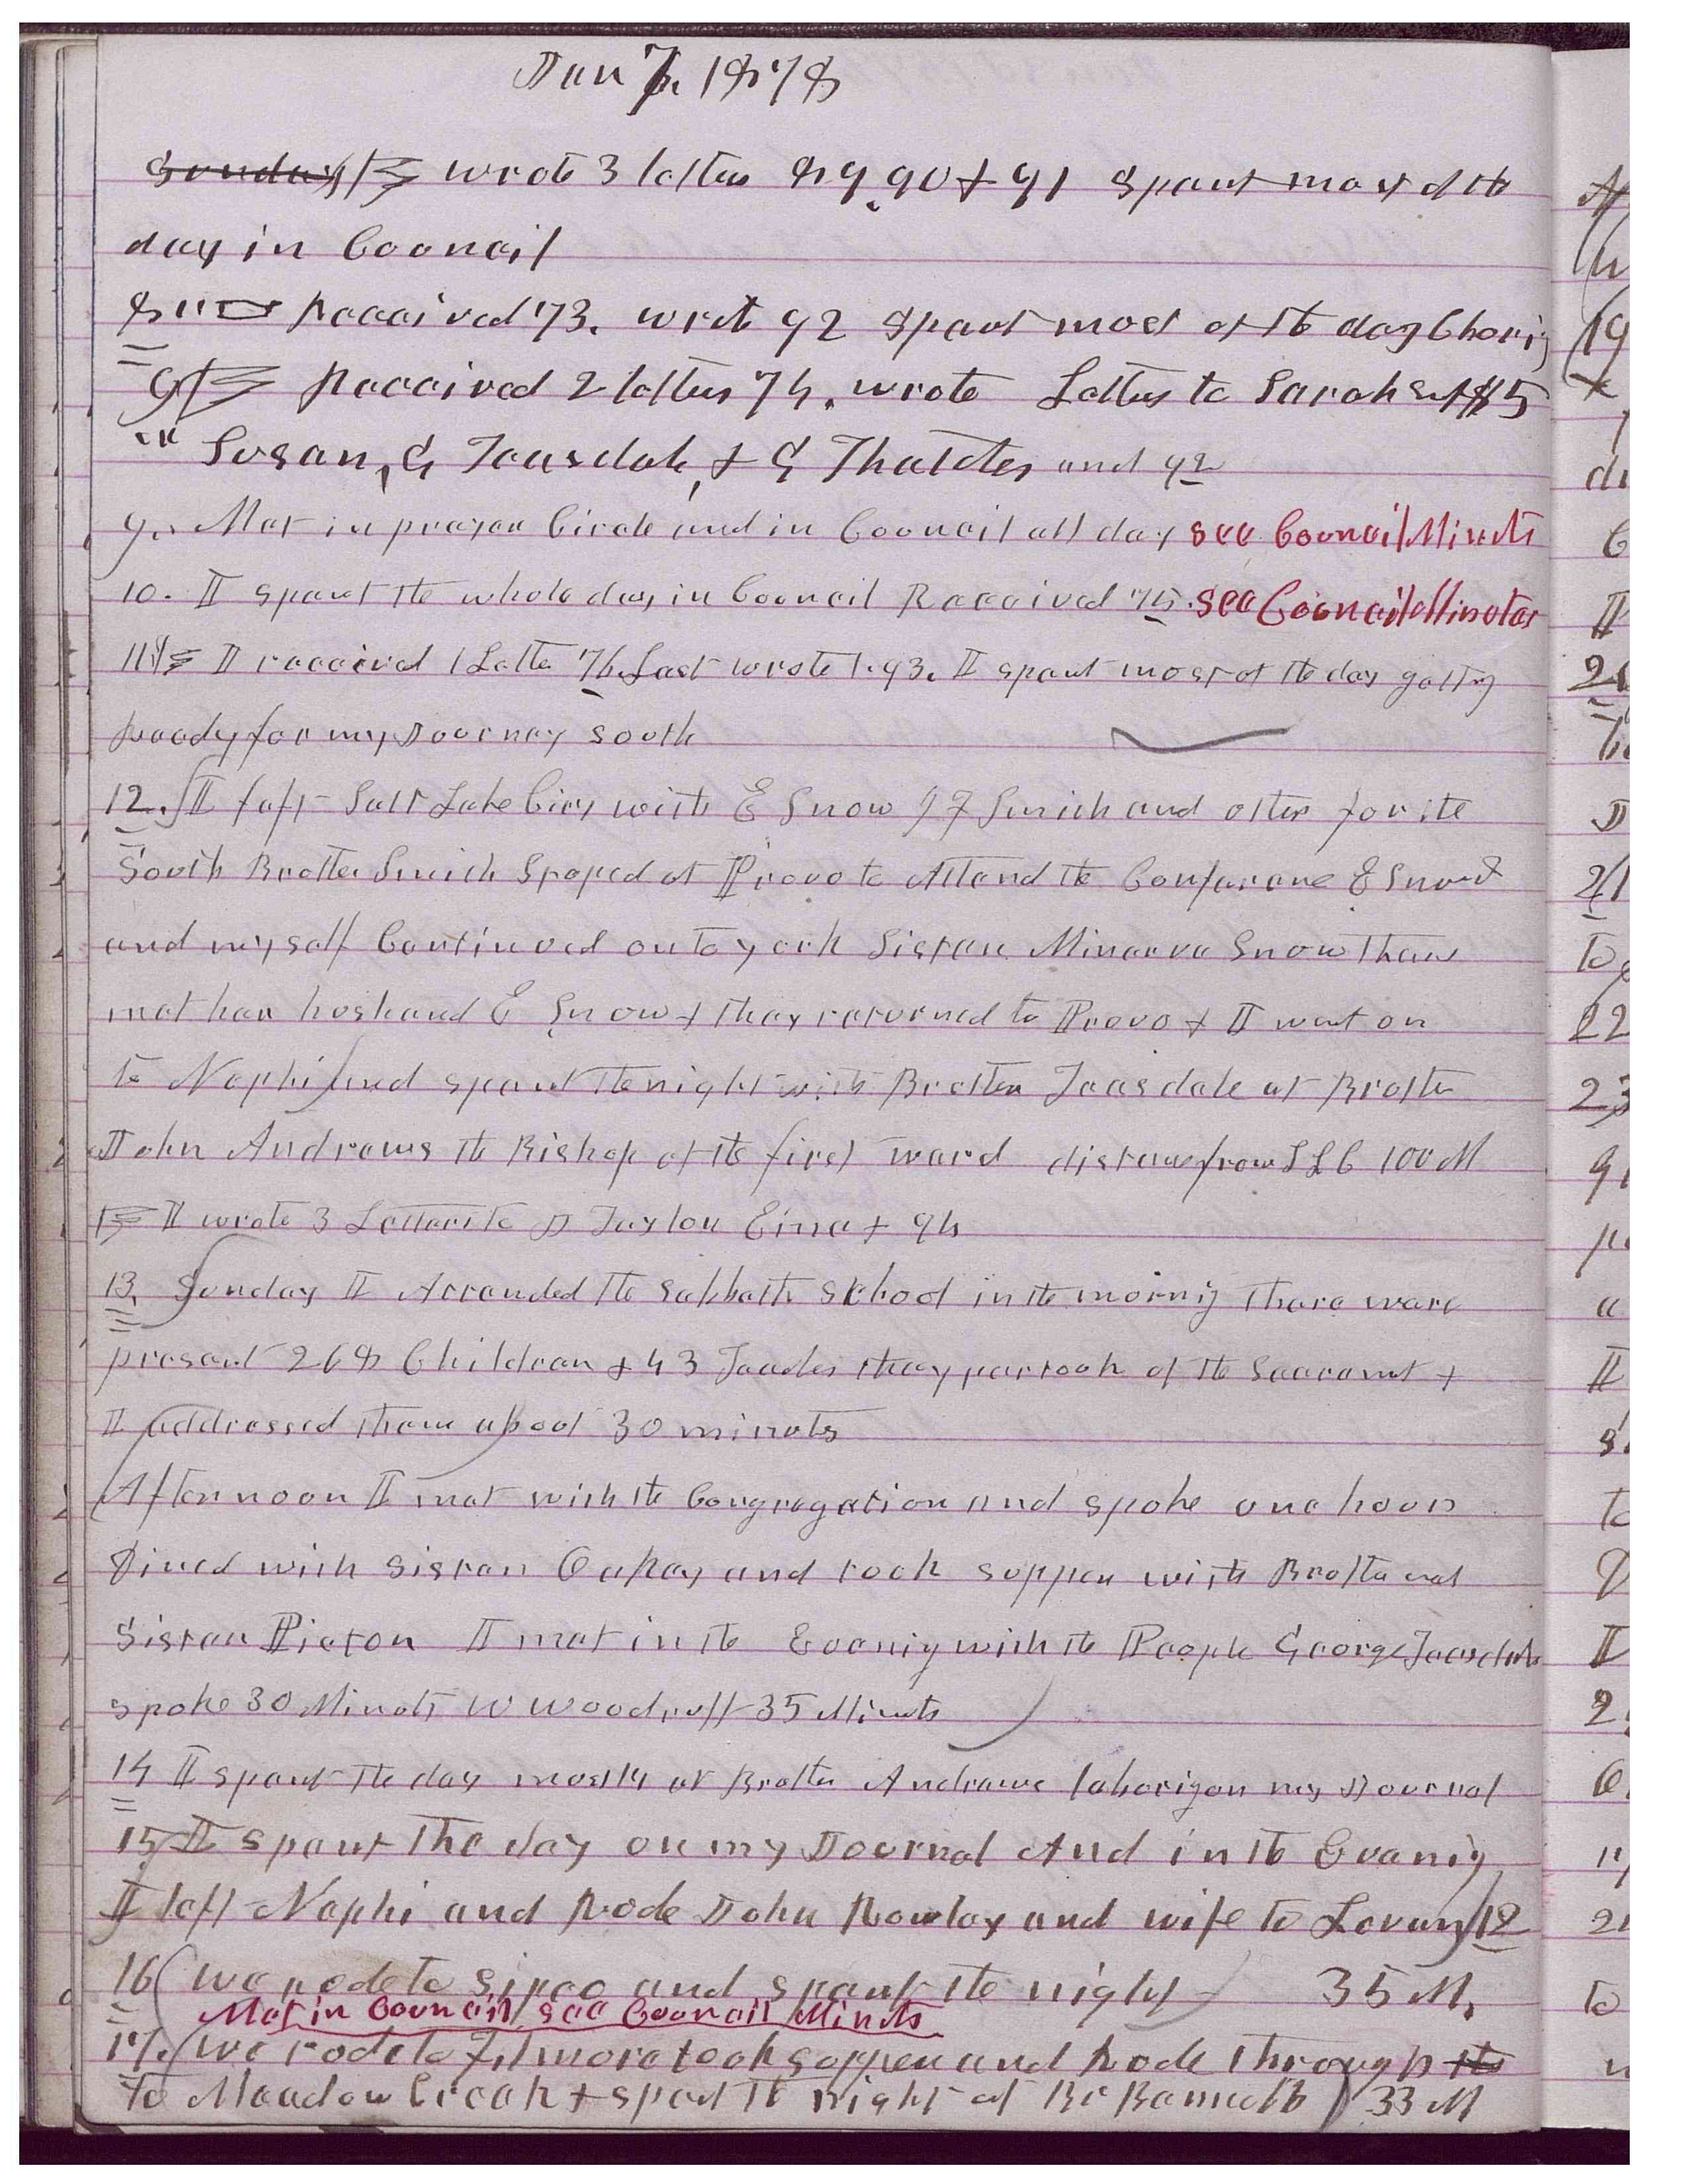 Jan 7, 1878
Sunday wrote 3 letters 89, 90 & 91 Spent most of the
day in Council
8 Received 73. wrote 92 Spent most of the day Choring
9 Received 2 letters 74. wrote Letters to Sarah sent $5
Susan, G Teasdale, & G Thatcher and 92
9. Met in prayer Circle and in Council all day see Council Minuts
10. I spent the whole day in Council Received 75. see Council Minutes
11 I received 1 Letter 76. Last wrote 1. 93. I spent most of the day getting
Ready for my Journey South
12. I left Salt Lake City with E Snow J F Smith and others for the
South Brother Smith Stoped at Provo to Attend the Conferance E Snow &
and myself Continued on to york Sister Minerva Snow there
met her husband E Snow & they returned to Provo & I went on
to Nephi and spent the night with Brother Teasdale at Brother
John Andrews the Bishop of the first ward distance from SLC 100 M
I wrote 3 Letters to J Taylor Emma & 94
13, Sunday I Attended the Sabbath School in the morning there were
present 268 Children & 43 Teachers they partook of the Sacrament &
I addressed them about 30 minuts
Afternoon I met with the Congregation and spoke one hour
Dined with Sister Oakey and took supper with Brother and
Sister Picton I met in the Evening with the People George Teasdale
spoke 30 Minuts W Woodruff 35 Minuts
14 I spent the day mostly at Brother Andrews laboring on my Journal
15 I spent the day on my Journal And in the Evening
I left Nephi and Rode John Rowley and wife to Levan 12
16 we rode to Sipeo and spent the night 35 M,
Met in Council, see Council Minuts
17. we rode to Filmore took supper and Rode through the
to Meadow Creek & spent the night at Br Bennetts 33 M